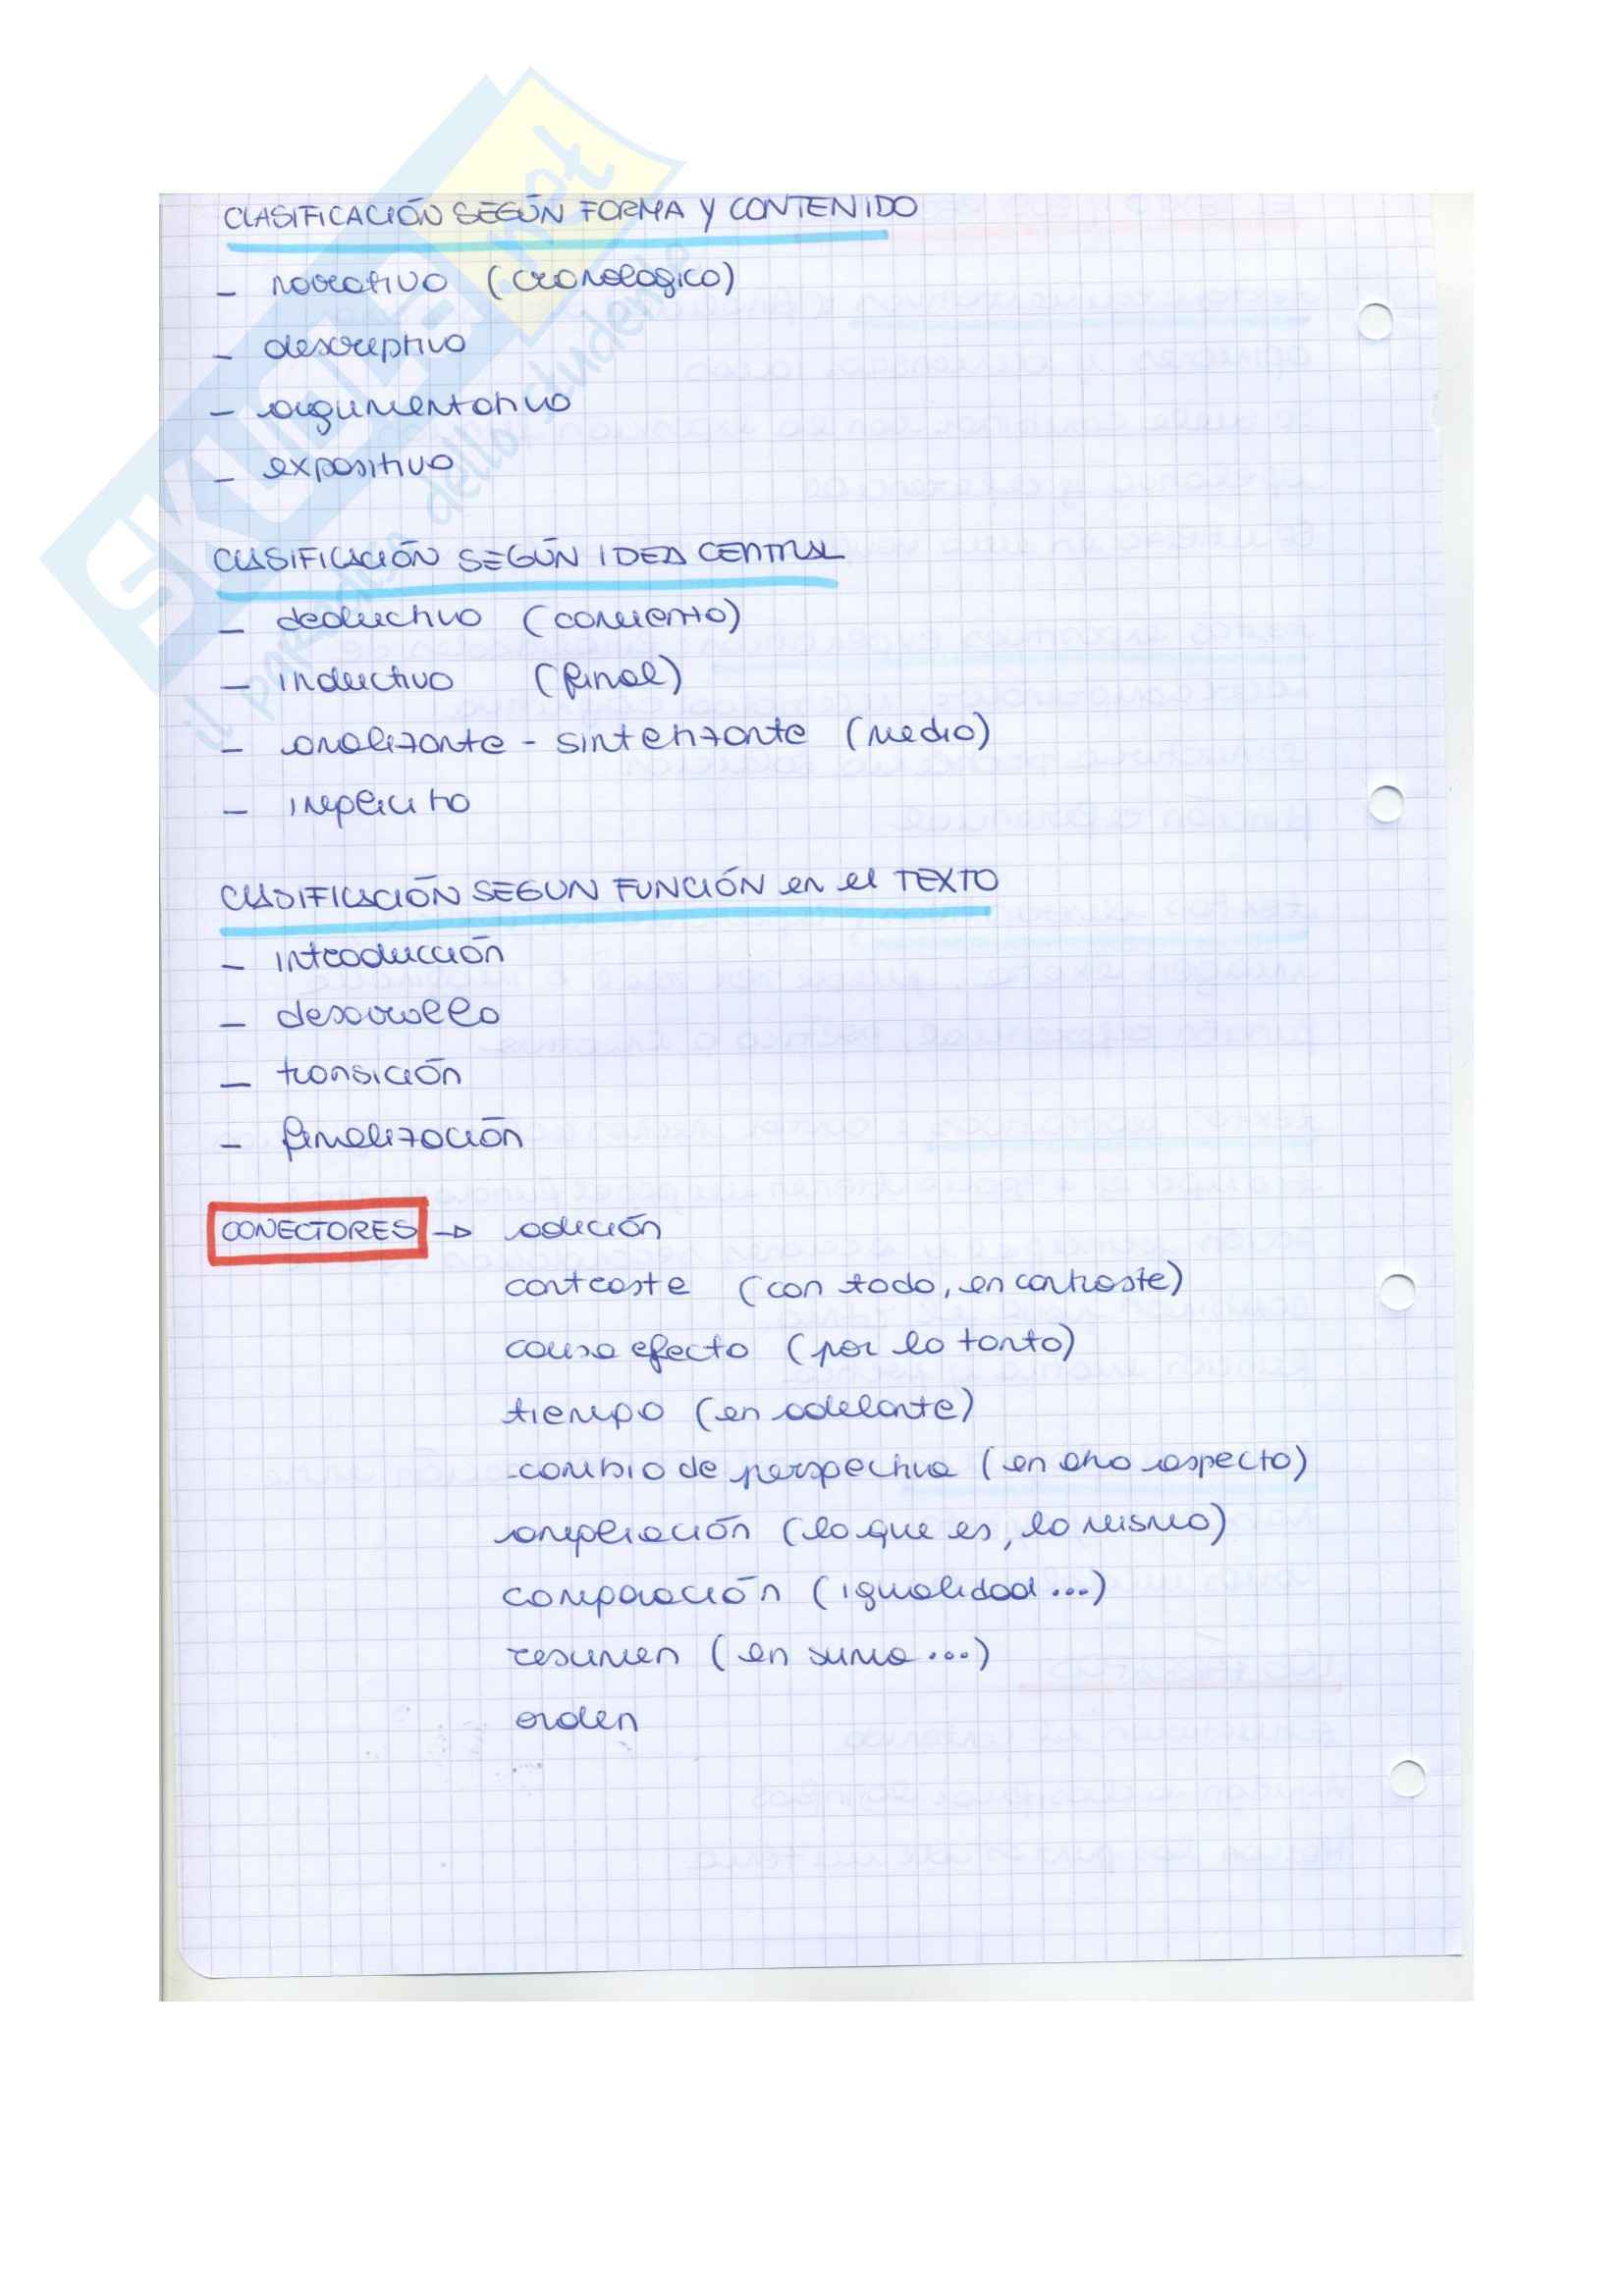 CLASIFICACIÓN SEGÚN FORMA Y CONTENIDO
- narrativo (cronologico)
- descriptivo
- argumentativo
- expositivo
CLASIFICACIÓN SEGÚN IDEA CENTRAL
- deductivo (comienzo)
- inductivo (final)
- analizante - sintetizante (medio)
- implicito
CLASIFICACIÓN SEGUN FUNCIÓN en el TEXTO
- introducción
- desarrollo
- transición
- finalización
CONECTORES → adición
contraste (con todo, en contraste)
causa efecto (por lo tanto)
tiempo (en adelante)
cambio de perspectiva (en otro respecto)
ampliación (lo que es, lo mismo)
comparación (igualidad...)
resumen (en suma...)
orden
SKUOLA.net
il paradiso dello studente